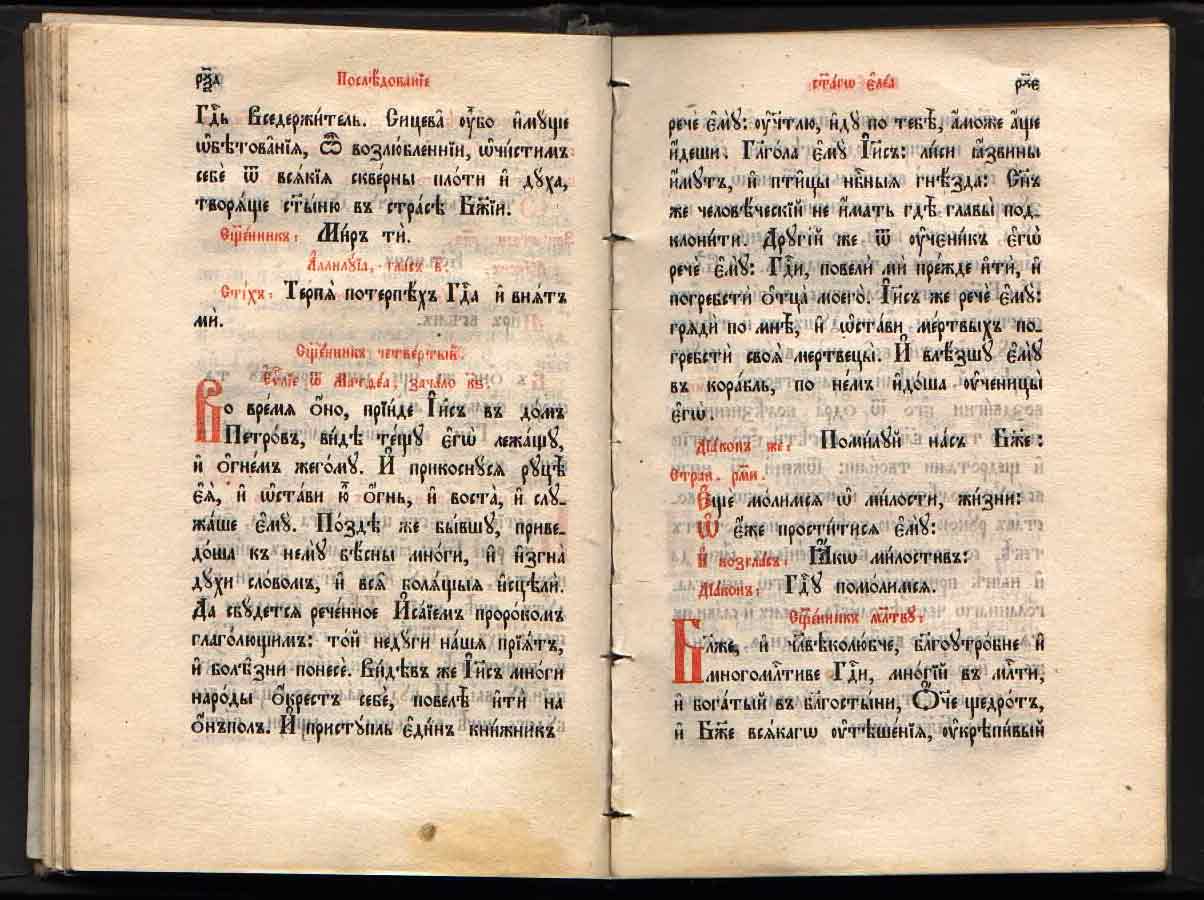 рѯ҃д Послѣ́дованїе
Гдⷭ҇ь Вседержи́тель. Сицева̑ ᲂу҆̀бо и҆мꙋ́ще
ѡ҆бѣтова̑нїѧ, Ѽ возлю́бленнїи, ѡ҆чи́стимъ
себѐ ѿ всѧ́кїѧ скве́рны пло́ти и҆ дꙋ́ха,
творѧ́ще ст҃ы́ню въ стра́сѣ Бж҃їи.
Сщ҃е́нникъ: Ми́ръ тѝ.
А҆ллилꙋ́їа, гласъ в҃.
Сті́хъ: Терпѧ̀ потерпѣ́хъ Гдⷭ҇а и҆ внѧ́тъ
мѝ.
Сщ҃е́нникъ четве́ртый.
Є҆ѵⷢ҇лїе ѿ Матѳе́а, зача́ло к҃ѕ:
Во вре́мѧ ѻ҆́но, прїи́де І҆и҃съ въ до́мъ
Петро́въ, ви́дѣ те́щꙋ є҆гѡ̀ лежа́щꙋ,
и҆ ѻ҆гне́мъ жего́мꙋ. И҆ прикоснꙋ́сѧ рꙋцѣ̀
є҆ѧ̀, и҆ ѡ҆ста́ви ю҆̀ ѻ҆́гнь, и҆ воста̀, и҆ слꙋ-
жа́ше є҆мꙋ̀. По́здѣ же бы́вшꙋ, приве-
до́ша къ немꙋ̀ бѣ́сны мно́ги, и҆ и҆згна̀
дꙋ́хи сло́вомъ, и҆ всѧ̑ болѧ́щыѧ и҆сцѣлѝ.
Да сбꙋ́детсѧ рече́нное И҆са́їемъ проро́комъ
глаго́лющимъ: то́й недꙋ́ги на́шѧ прїѧ́тъ,
и҆ болѣ́зни понесѐ. Ви́дѣвъ же І҆и҃съ мно́ги
наро́ды ѻ҆́крестъ себѐ, повелѣ̀ и҆тѝ на
ѻ҆́нъполъ. И҆ пристꙋ́пль є҆ди́нъ кни́жникъ
ст҃а́гѡ є҆ле́а рѯ҃є
речѐ є҆мꙋ̀: ᲂу҆чт҃лю, и҆дꙋ̀ по тебѣ̀, а҆́може а҆́ще
и҆́деши. Гл҃гола є҆мꙋ̀ І҆и҃съ: ли́си ꙗ҆́звины
и҆́мꙋтъ, и҆ пти́цы нбⷭ҇ныѧ гнѣ́зда: Сн҃ъ
же человѣ́ческїй не и҆́мать гдѣ̀ главы̀ под-
клони́ти. Дрꙋгі́й же ѿ ᲂу҆чени̑къ є҆гѡ̀
речѐ є҆мꙋ̀: Гдⷭ҇и, повелѝ мѝ пре́жде и҆тѝ, и҆
погребстѝ ѻ҆тца̀ моего̀. І҆и҃съ же речѐ є҆мꙋ̀:
грѧдѝ по мнѣ̀, и҆ ѡ҆ста́ви ме́ртвыхъ по-
гребстѝ своѧ̑ мертвецы̀. И҆ влѣ́зшꙋ є҆мꙋ̀
въ кора́бль, по не́мъ и҆до́ша ᲂу҆ченицы̀
є҆гѡ̀.
Дїа́конъ же: Поми́лꙋй на́съ Бж҃е:
Стран. рм҃и.
Є҆щѐ мо́лимсѧ ѡ҆ ми́лости, жи́зни:
Ѡ҆ є҆́же прости́тисѧ є҆мꙋ̀:
И҆ возгла́съ: Ꙗ҆́кѡ ми́лостивъ:
Дїа́конъ: Гдⷭ҇ꙋ помо́лимсѧ.
Сщ҃е́нникъ мл҃твꙋ:
Бл҃же, и҆ чл҃вѣколю́бче, бл҃гоꙋтро́бне и҆
многомлⷭ҇тиве Гдⷭ҇и, мно́гїй въ млⷭ҇ти,
и҆ бога́тый въ бл҃госты́ни, Ѻ҆́ч҃е щедро́тъ,
и҆ Бж҃е всѧ́кагѡ ᲂу҆тѣше́нїѧ, ᲂу҆крѣпи́вый